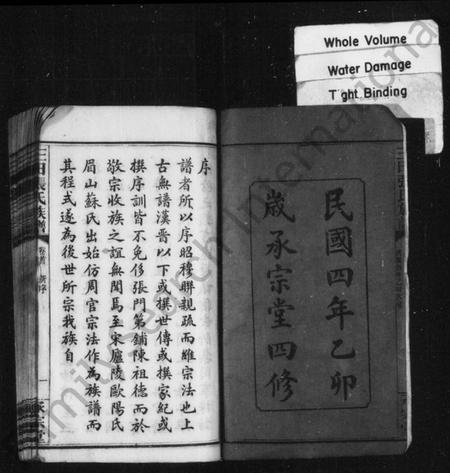 Whole Volume
Water Damage
Tight Binding
民國四年乙卯
歲承宗堂四修
序
譜者所以序昭穆聯親疏而維宗法也上
古無譜漢晉以下或撰世傳或撰家紀或
撰序訓皆不免侈張門第鋪陳祖德而於
敬宗收族之誼無聞焉至宋廬陵歐陽氏
眉山蘇氏出始仿周官宗法作為族譜而
其程式遂為後世所宗我族自
三田張氏族譜